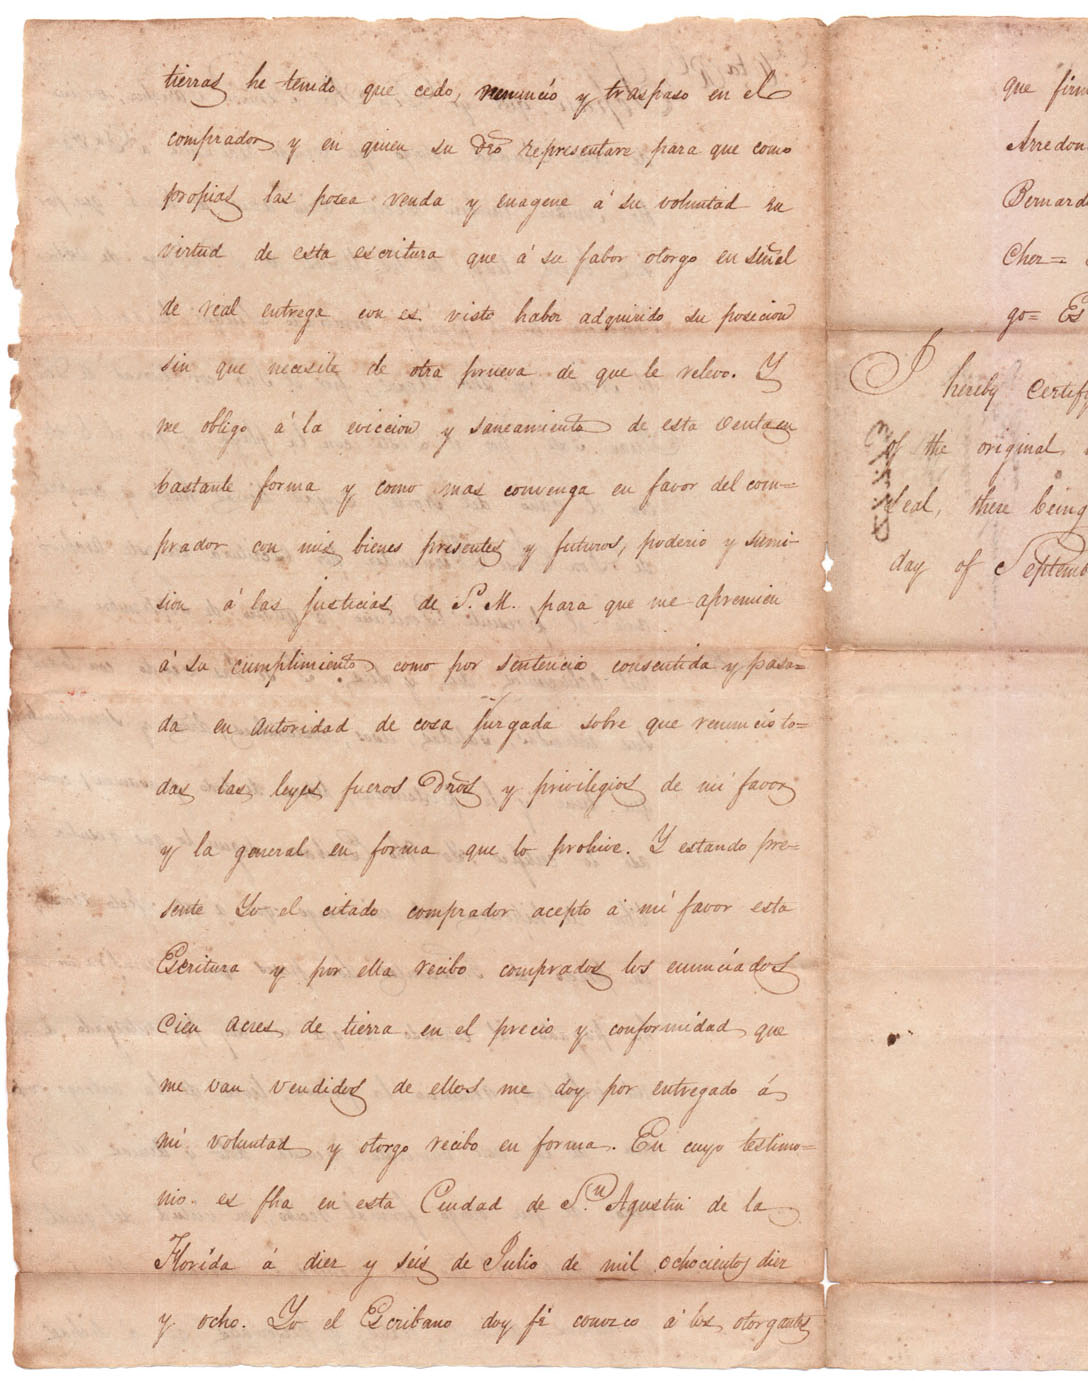 tierras he tenido que cedo, renuncío y traspaso en el
comprador y en quien su dro representare para que como
propias las posea venda y enagene á su voluntad En
virtud de esta escritura que á su fabor otorgo en señal
de real entrega con es visto haber adquirido su posecion
sin que necesite de otra prueva de que le relevo. Y
me obligo á la eviccion y saneamiento de esta venta en
bastante forma y como mas convenga en favor del com=
prador con mis bienes presentes y futuros, poderio y sumi-
sion á las justicias de S. M. para que me apremien
á su cumplimiento como por sentencia consentida y pasa=
da en autoridad de cosa jurgada sobre que renuncio to=
das las leyes fueros Dros y privilegios de mi favor
y la general en forma que lo prohive. Y estando pre=
sente Yo el citado comprador acepto á mi favor esta
Escritura y por ella recibo comprados los enunciados
Cien acres de tierra en el precio y conformidad que
me van vendidos de ellos me doy por entregado á
mi voluntad y otorgo recibo en forma. En cuyo testimo=
nio es fha en esta Ciudad de Sn. Agustin de la
Florida á diez y seis de Julio de mil ochocientos diez
y ocho. Yo el Escribano doy fé conozco á los otorgantes
que firm
Arredon
Bernard
Cher=
go= Es
I hereby certify
of the original
deal, there being
day of Septemb